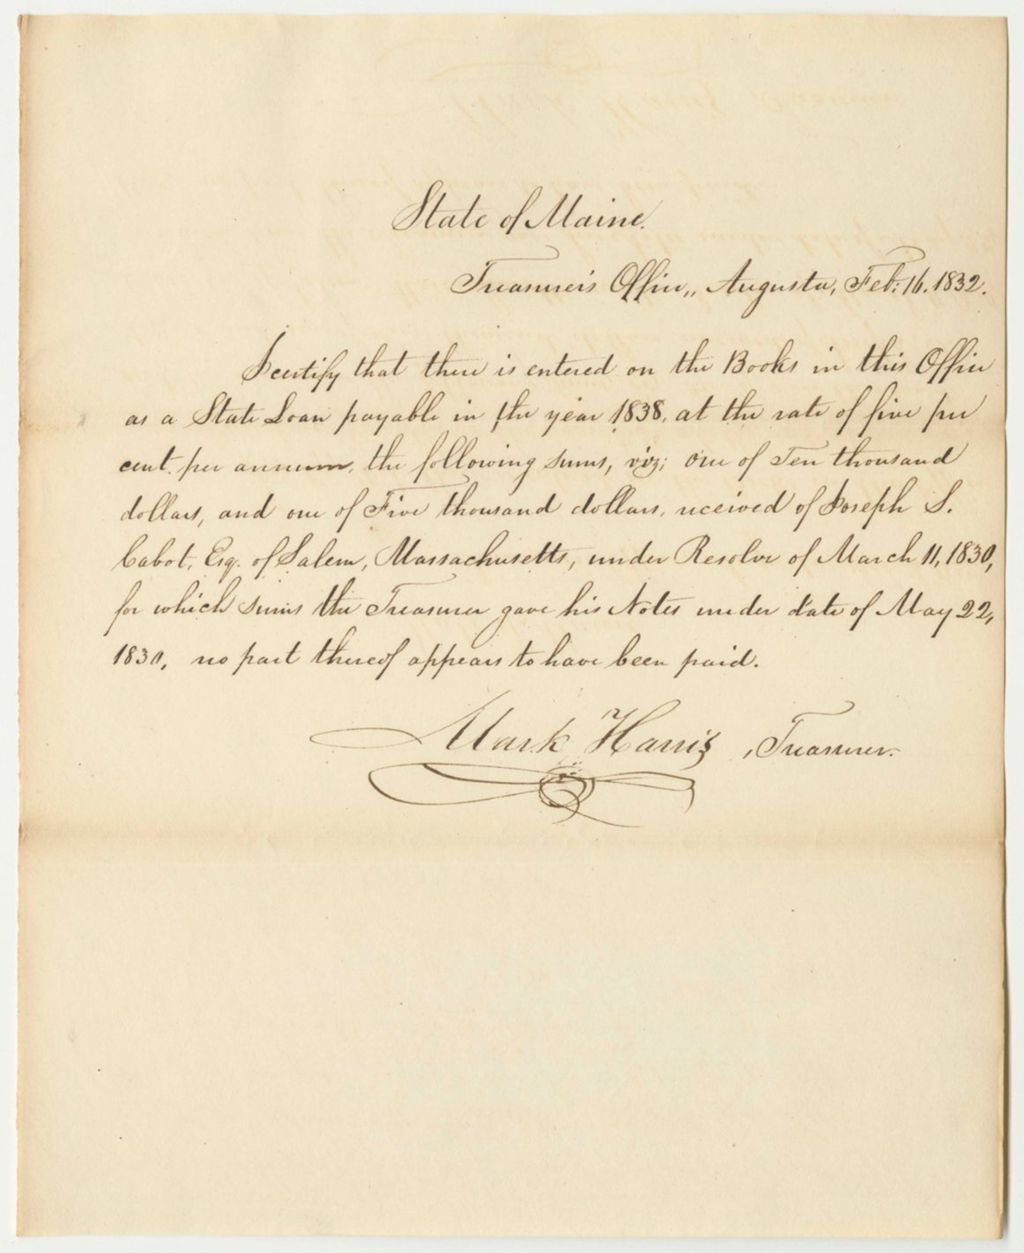 State of Maine.
Treasurer's Office, Augusta, Feb. 16. 1832.
I certify that there is entered on the Books in this Office
as a State Loan payable in the year 1838, at the rate of five per
cent. per annum, the following sums, viz; one of Ten thousand
dollars, and one of Five thousand dollars, received of Joseph S.
Cabot, Esq. of Salem, Massachusetts, under Resolve of March 11, 1830,
for which sums the Treasurer gave his Notes under date of May 22,
1830, no part thereof appears to have been paid.
Mark Harris, Treasurer.